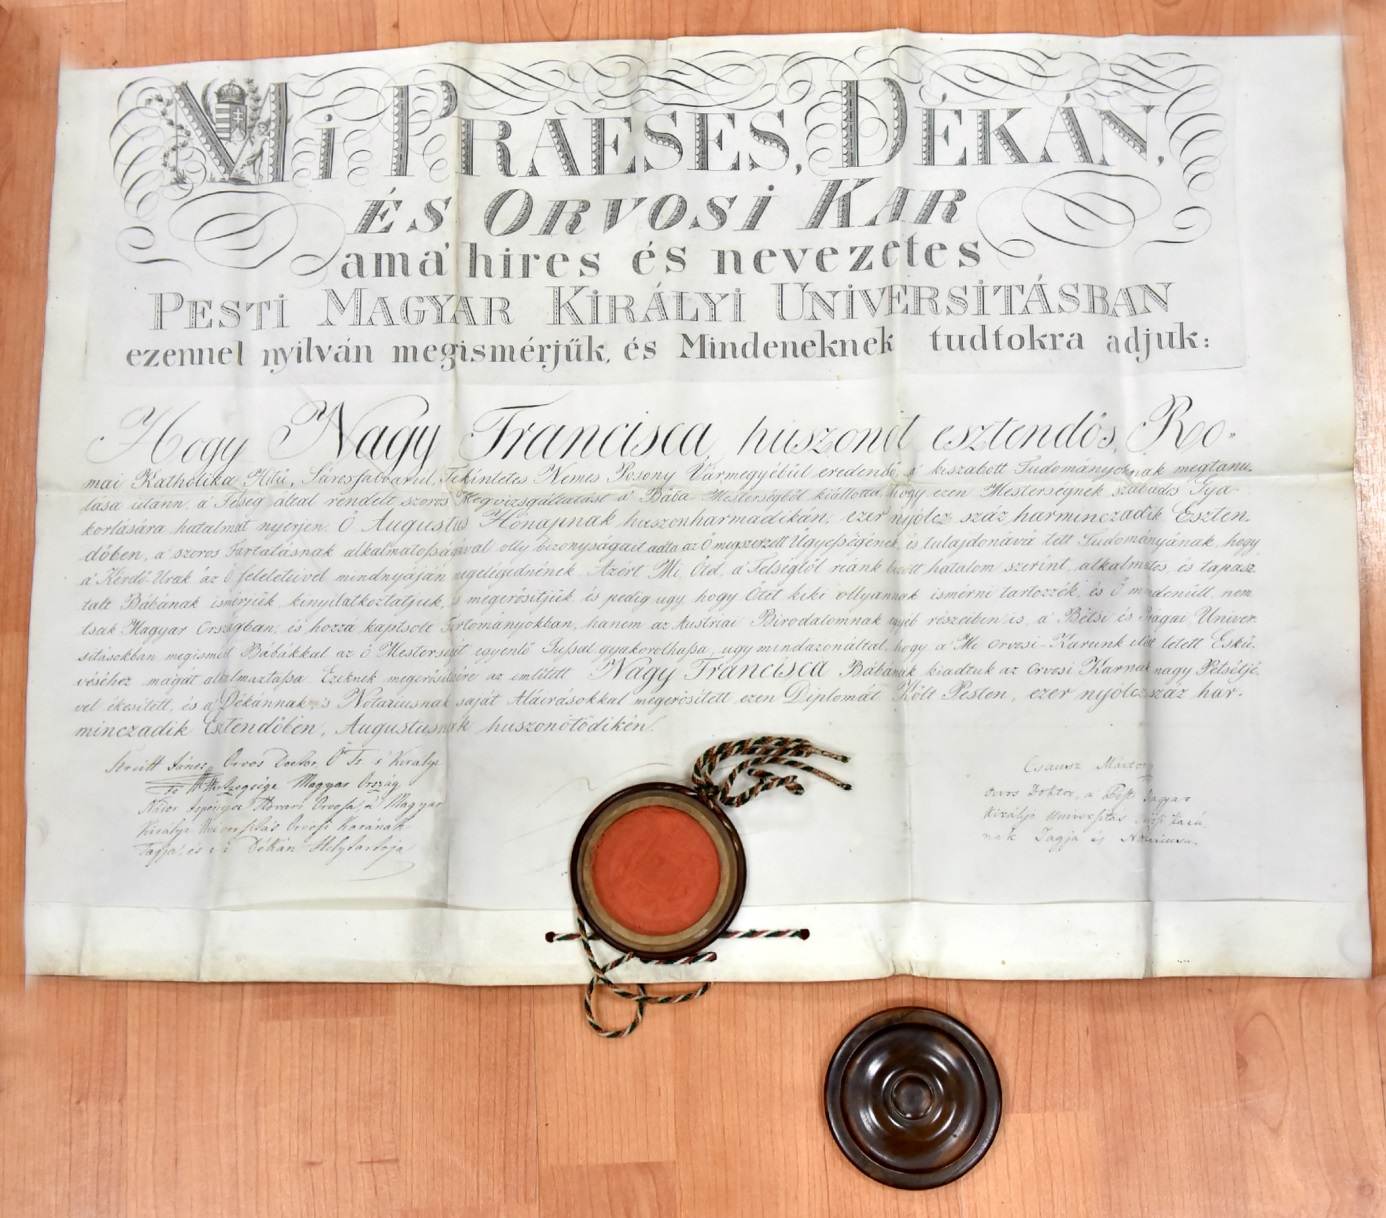 Mi Praeses, Dékán,
és Orvosi Kar
ama' hires és nevezetes
Pesti Magyar Királyi Universitásban
ezennel nyilván megismérjük, és Mindeneknek tudtokra adjuk:
Hogy Nagy Francisca, huszonöt esztendős, Ro-
mai Katholika Hitű, Tekintetes Nemes Posony Vármegyéből eredendő, a' kiszabott Tudományoknak megtanu-
lása után, a' Felség által rendelt szoros Megvizsgáltatást a' Bába-Mesterségből kiállotta, hogy ezen Mesterségnek szabados Gya-
korlására hatalmat nyerjen. Ő Augustus Hónapnak huszonharmadikán, ezer nyólcz száz harminczadik Eszten-
dőben, a' szoros Tartatásnak alkalmatosságával olly bizonyságait adta az Ő megszerzett Ügyességének, és tulajdonává tett Tudományának, hogy
a' Kérdő Urak az ő feleleteivel mindnyáján megelégednének. Azért Mi Őtet, a' Felségtől reánk hatalom szerint, alkalmatos, és tapasz-
talt Bábának ismérjük, kinyilatkoztatjuk, megerősítjük és pedig ugy hogy Őtet kiki ollyannak ismérni tartozzék, és Ő mindenütt, nem
tsak Magyar Országban, és hozzá kaptsolt Tartományokban, hanem az Austriai Birodalomnak egyéb részeiben is, a' Bétsi és Prágai Univer-
sitásokban megismért Bábákkal az ő Mesterségét egyenlő Jussal gyakorolhassa, ugy mindazonáltal, hogy a' Mi Orvosi Karunk előtt letett Eskü-
véséhez magát alkalmaztassa. Ezeknek megerősítésére az említett Nagy Francisca Bábának kiadtuk az Orvosi Karnak nagy Petsétjé-
vel ékesített, és a' Dékánnak, 's Notáriusnak saját Aláírásokkal megerősített ezen Diplomát. Költ Pesten, ezer nyólczszáz har-
minczadik Esztendőben, Augustusnak huszonötödikén.
János Orvos Doctor, Ő Cs. 's Királyi
Felsége Magyar Ország
Orvosa a' Magyar
Királyi Universitás Orvosi Karának
Tagja, és a' Dékán Helytartója
Csausz Márton
Orvos Doktor, a' Pesti Magyar
Királyi Universitas Orvosi Kará-
nak Tagja és Notáriusa.